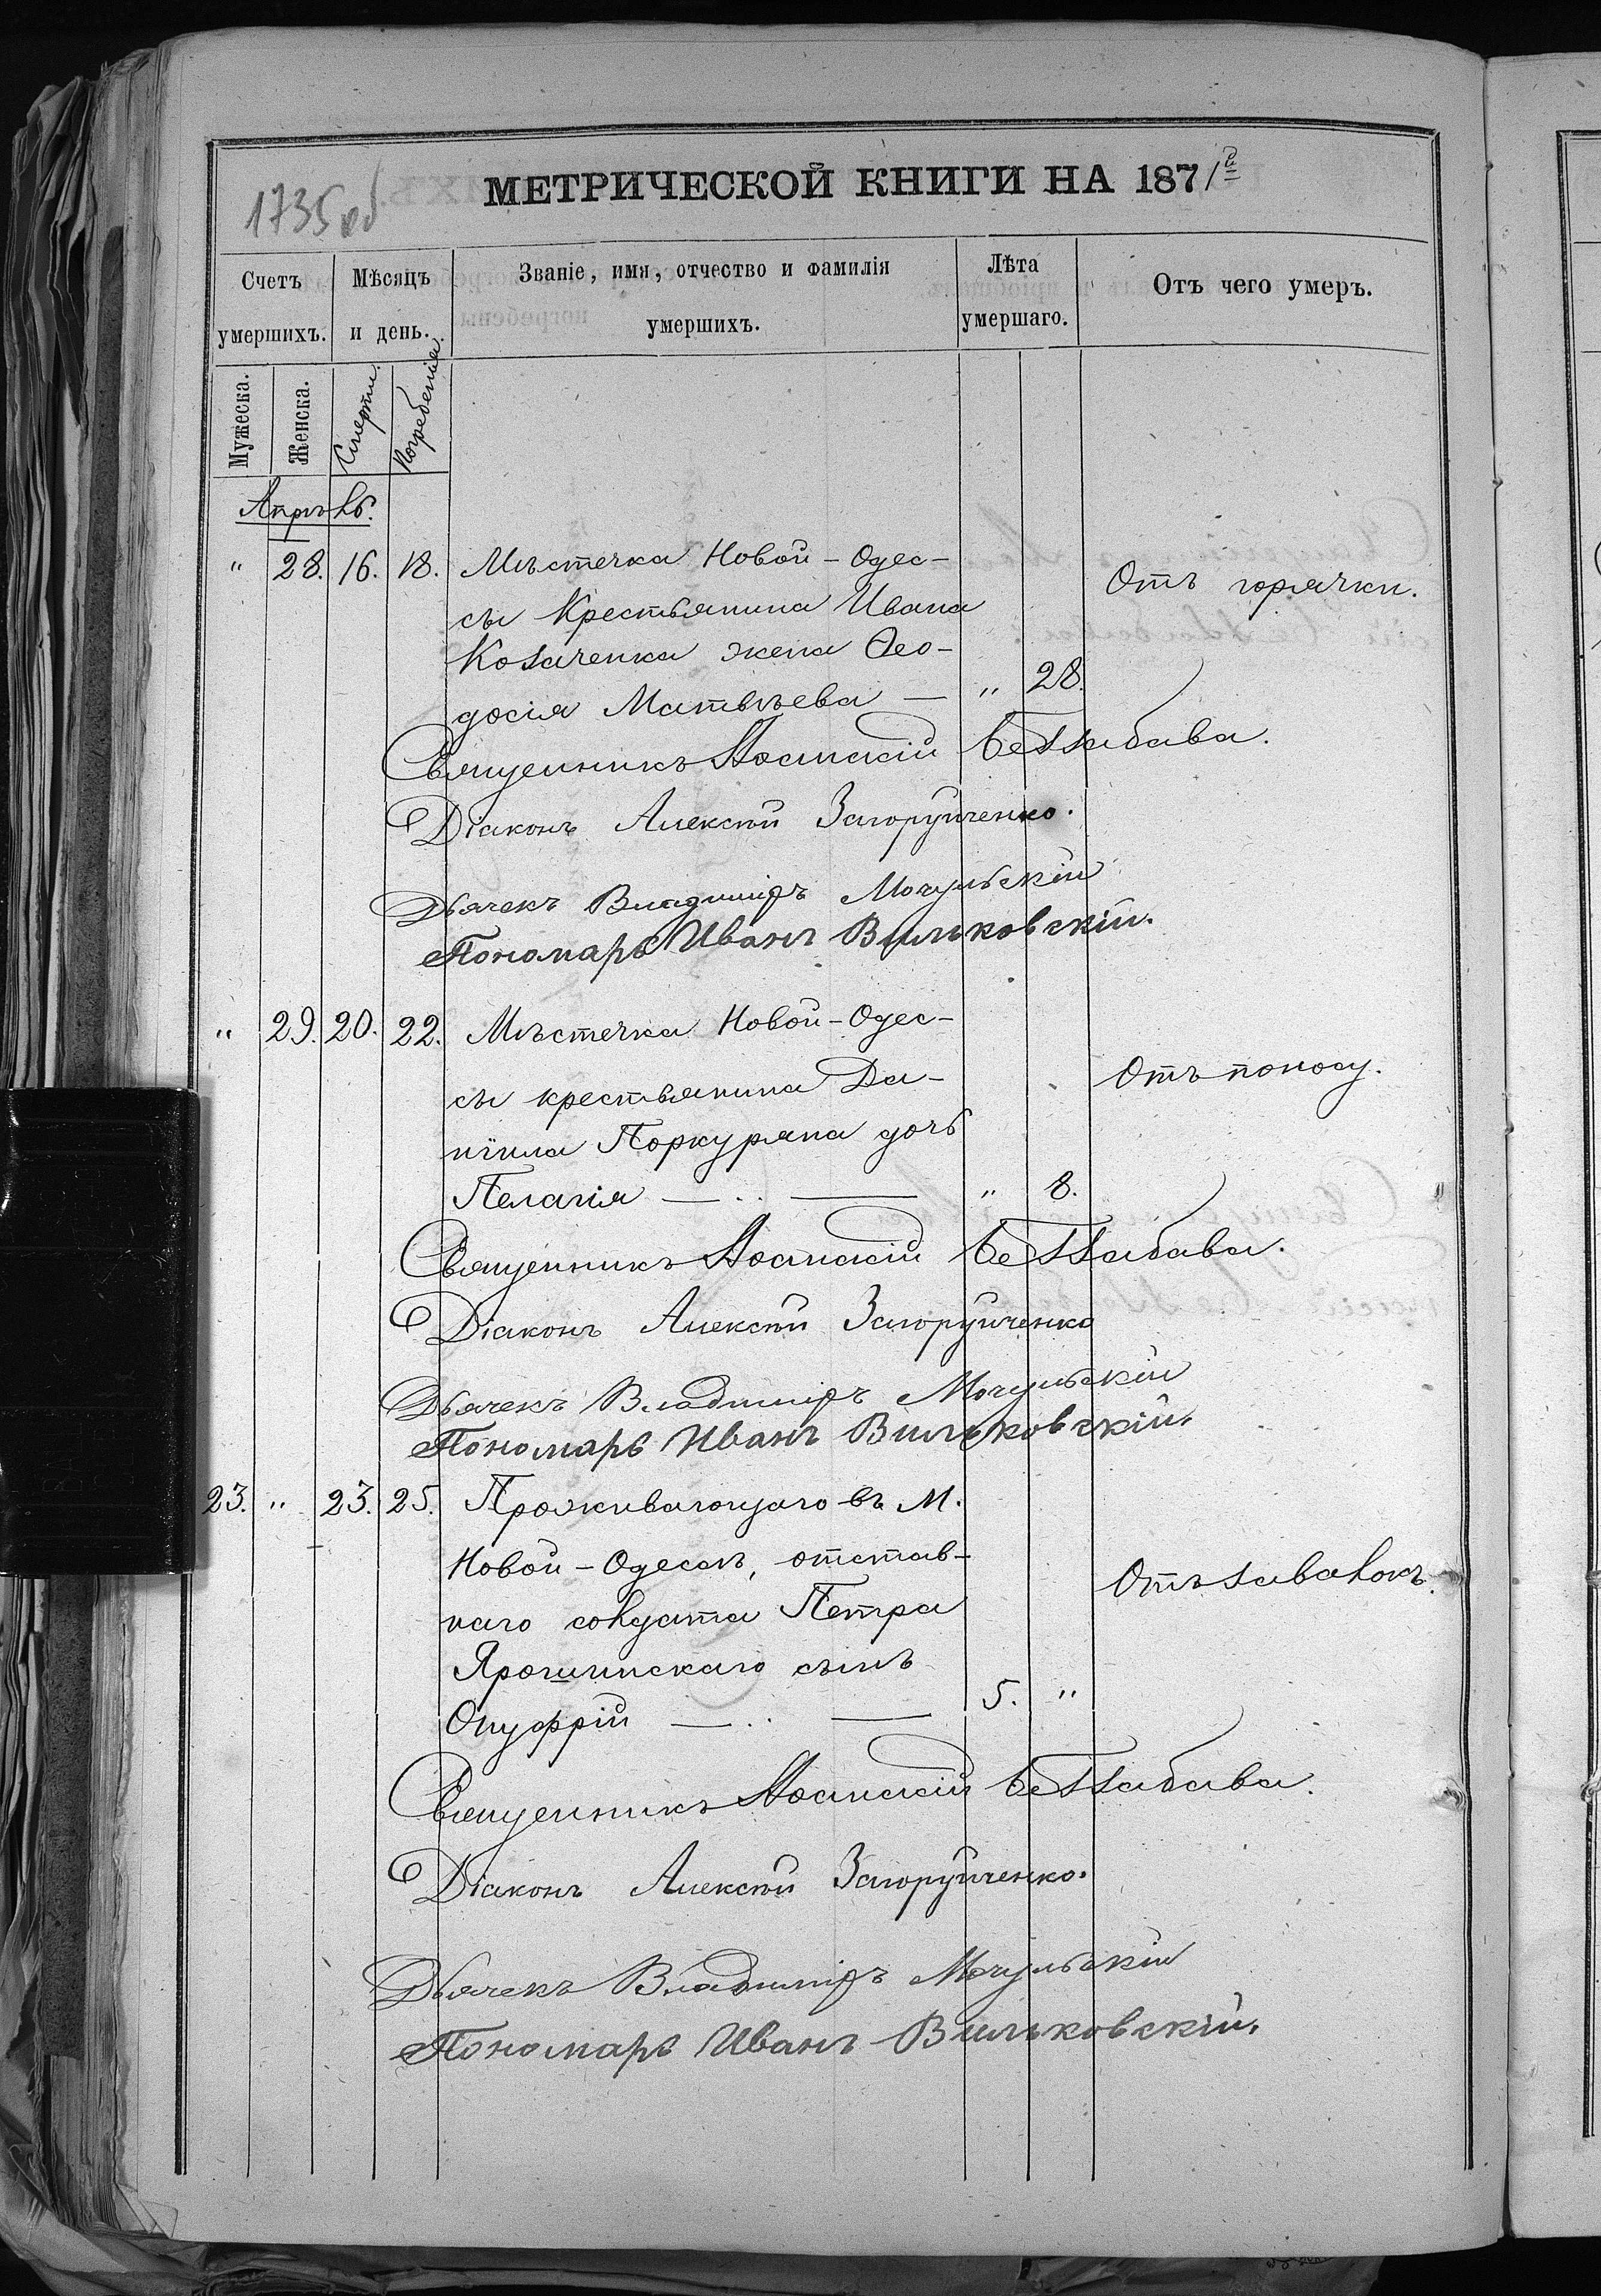 1735 об
МЕТРИЧЕСКОЙ КНИГИ НА 1871й
Счетъ умершихъ.
Мѣсяцъ и день.
Званіе, имя, отчество и фамилія умершихъ.
Лѣта умершаго.
Отъ чего умеръ.
Мужеска.
Женска.
Смерти.
Погребенія.
Апрѣль.
" 28. 16. 18. Мѣстечка Новой-Одес-
сы Крестьянина Ивана
Козаченка жена Ѳео-
досія Матвѣева — " 28.
Отъ горячки.
Священникъ Беззабава.
Діаконъ Алексѣй Загоруйченко.
Дьячекъ Владиміръ Мочульскій
Пономарь Иванъ Вильковскій.
" 29. 20. 22. Мѣстечка Новой-Одес-
сы крестьянина Да-
ніила Поркуряна дочь
Пелагія — .. — " 8.
Отъ поносу.
Священникъ Беззабава.
Діаконъ Алексѣй Загоруйченко
Дьячекъ Владиміръ Мочульскій
Пономарь Иванъ Вильковскій.
23. " 23. 25. Проживающаго въ М.
Новой-Одессѣ, отстав-
наго солдата Петра
Ярошинскаго сынъ
Онуфрій — .. — 5. "
Отъ завалокъ.
Священникъ Беззабава.
Діаконъ Алексѣй Загоруйченко.
Дьячекъ Владиміръ Мочульскій
Пономарь Иванъ Вильковскій.